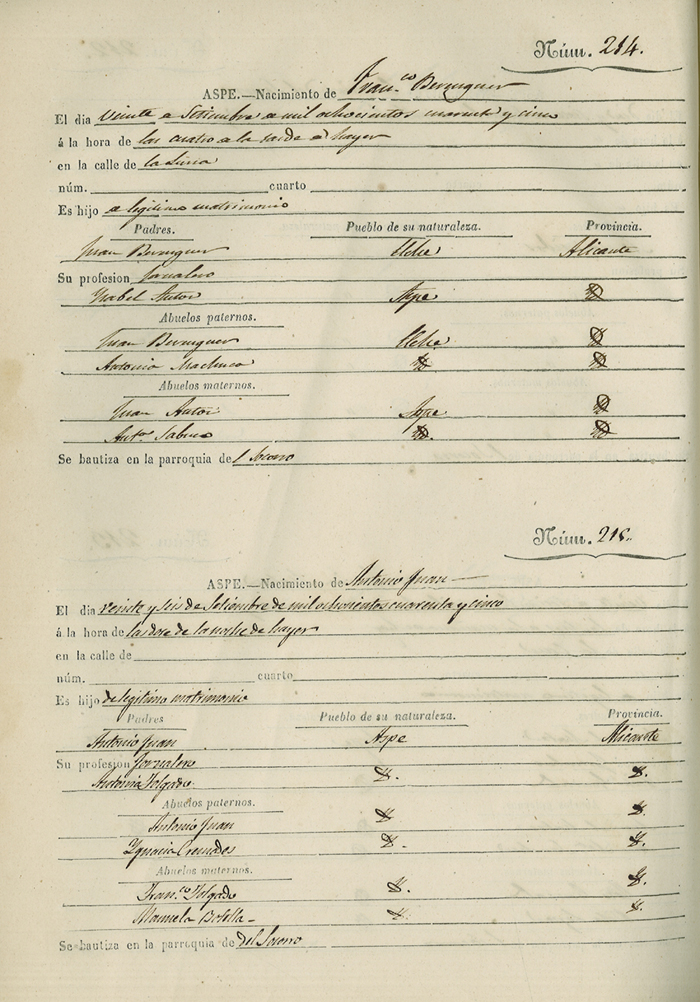 Núm. 214.
ASPE.—Nacimiento de Fran.co Berenguer
El dia veinte de Setiembre de mil ochocientos cuarenta y cinco
á la hora de las cuatro de la tarde de hayer
en la calle de la Luna
núm. cuarto
Es hijo de legitimo matrimonio
Padres. Pueblo de su naturaleza. Provincia.
Juan Berenguer Elche Alicante
Su profesion Jornalero
Ysabel Autor Aspe
Abuelos paternos.
Juan Berenguer Elche
Antonia Machuca
Abuelos maternos.
Juan Autor Aspe
Ant.a
Se bautiza en la parroquia del Socorro
Núm. 215.
ASPE.—Nacimiento de Antonio Juan
El dia veinte y seis de Setiembre de mil ochocientos cuarenta y cinco
á la hora de las doce de la noche de hayer
en la calle de
núm. cuarto
Es hijo de legitimo matrimonio
Padres Pueblo de su naturaleza. Provincia.
Antonio Juan Aspe Alicante
Su profesion Jornalero
Antonia Folgado
Abuelos paternos.
Antonio Juan
Ygnacia Cremades
Abuelos maternos.
Fran.co Folgado
Manuela Botella
Se bautiza en la parroquia de del Socorro